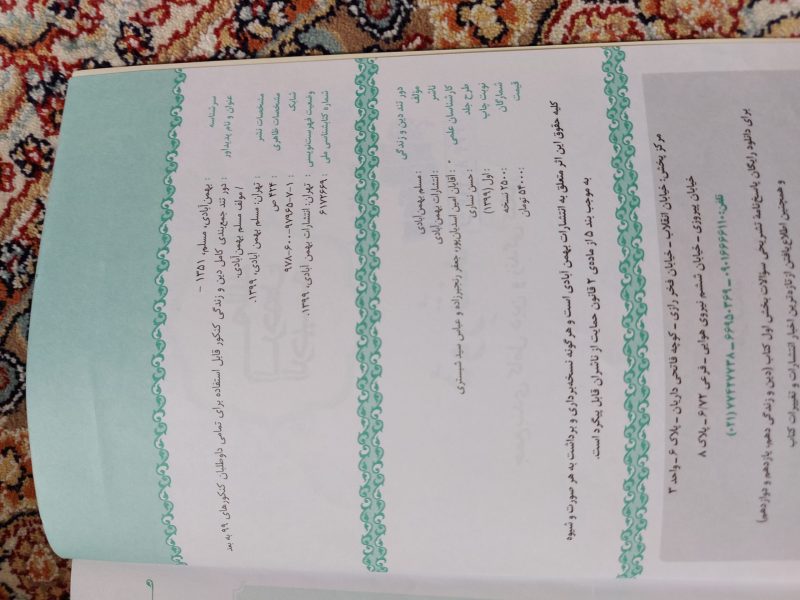 سرشناسه : بهمن‌آبادی، مسلم، ۱۳۵۱ -
عنوان و نام پدیدآور : دور تند جمع‌بندی کامل دین و زندگی کنکور قابل استفاده برای تمامی داوطلبان کنکورهای ۹۹ به بعد
/ مولف مسلم بهمن‌آبادی.
مشخصات نشر : تهران: مسلم بهمن آبادی، ۱۳۹۹.
مشخصات ظاهری : ۴۲۴ ص
شابک : ۹۷۸-۶۰۰-۰۰-۹۷۹۶۵-۷-۱
وضعیت فهرست‌نویسی : تهران: انتشارات بهمن آبادی، ۱۳۹۹.
شماره کتابشناسی ملی : ۶۱۷۲۶۶۹
دور تند دین و زندگی
مولف : مسلم بهمن‌آبادی
ناشر : انتشارات بهمن‌آبادی
کارشناسان علمی : آقایان امین اسدیان‌پور، جعفر رنجبرزاده و عباس سید شبستری
طرح جلد : حسن نساری
نوبت چاپ : اول (۱۳۹۹)
شمارگان : ۲۵۰۰ نسخه
قیمت : ۵۴۰۰۰ تومان
کلیه حقوق این اثر متعلق به انتشارات بهمن آبادی است و هرگونه نسخه‌برداری و برداشت به هر صورت و شیوه
به موجب بند ۵ از ماده‌ی ۲ قانون حمایت از ناشران قابل پیگرد است.
مرکز پخش: خیابان انقلاب ـ خیابان فخر رازی ـ کوچه فاتحی داریان ـ پلاک ۶ ـ واحد ۳
خیابان پیروزی ـ خیابان ششم نیروی هوایی ـ فرعی ۶/۷۲ ـ پلاک ۸
تلفن: ۰۹۰۱۶۶۶۶۱۱۰ - ۶۶۹۵۰۳۶۹ - ۷۷۲۴۷۷۳۸ (۰۲۱)
برای دانلود رایگان پاسخ‌نامه تشریحی سوالات بخش اول کتاب (دین و زندگی دهم، یازدهم و دوازدهم)
و همچنین اطلاع یافتن از تازه‌ترین اخبار انتشارات و تغییرات کتاب